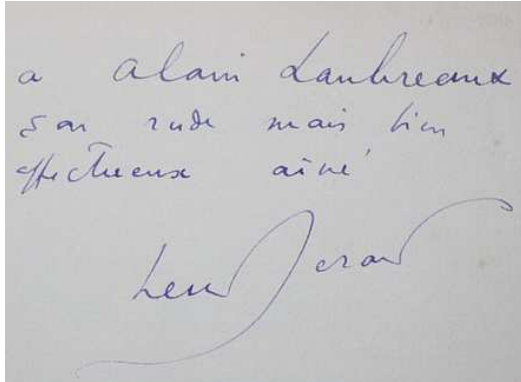 a Alain Laubreaux
son rude mais bien
affectueux ainé
Henri Béraud